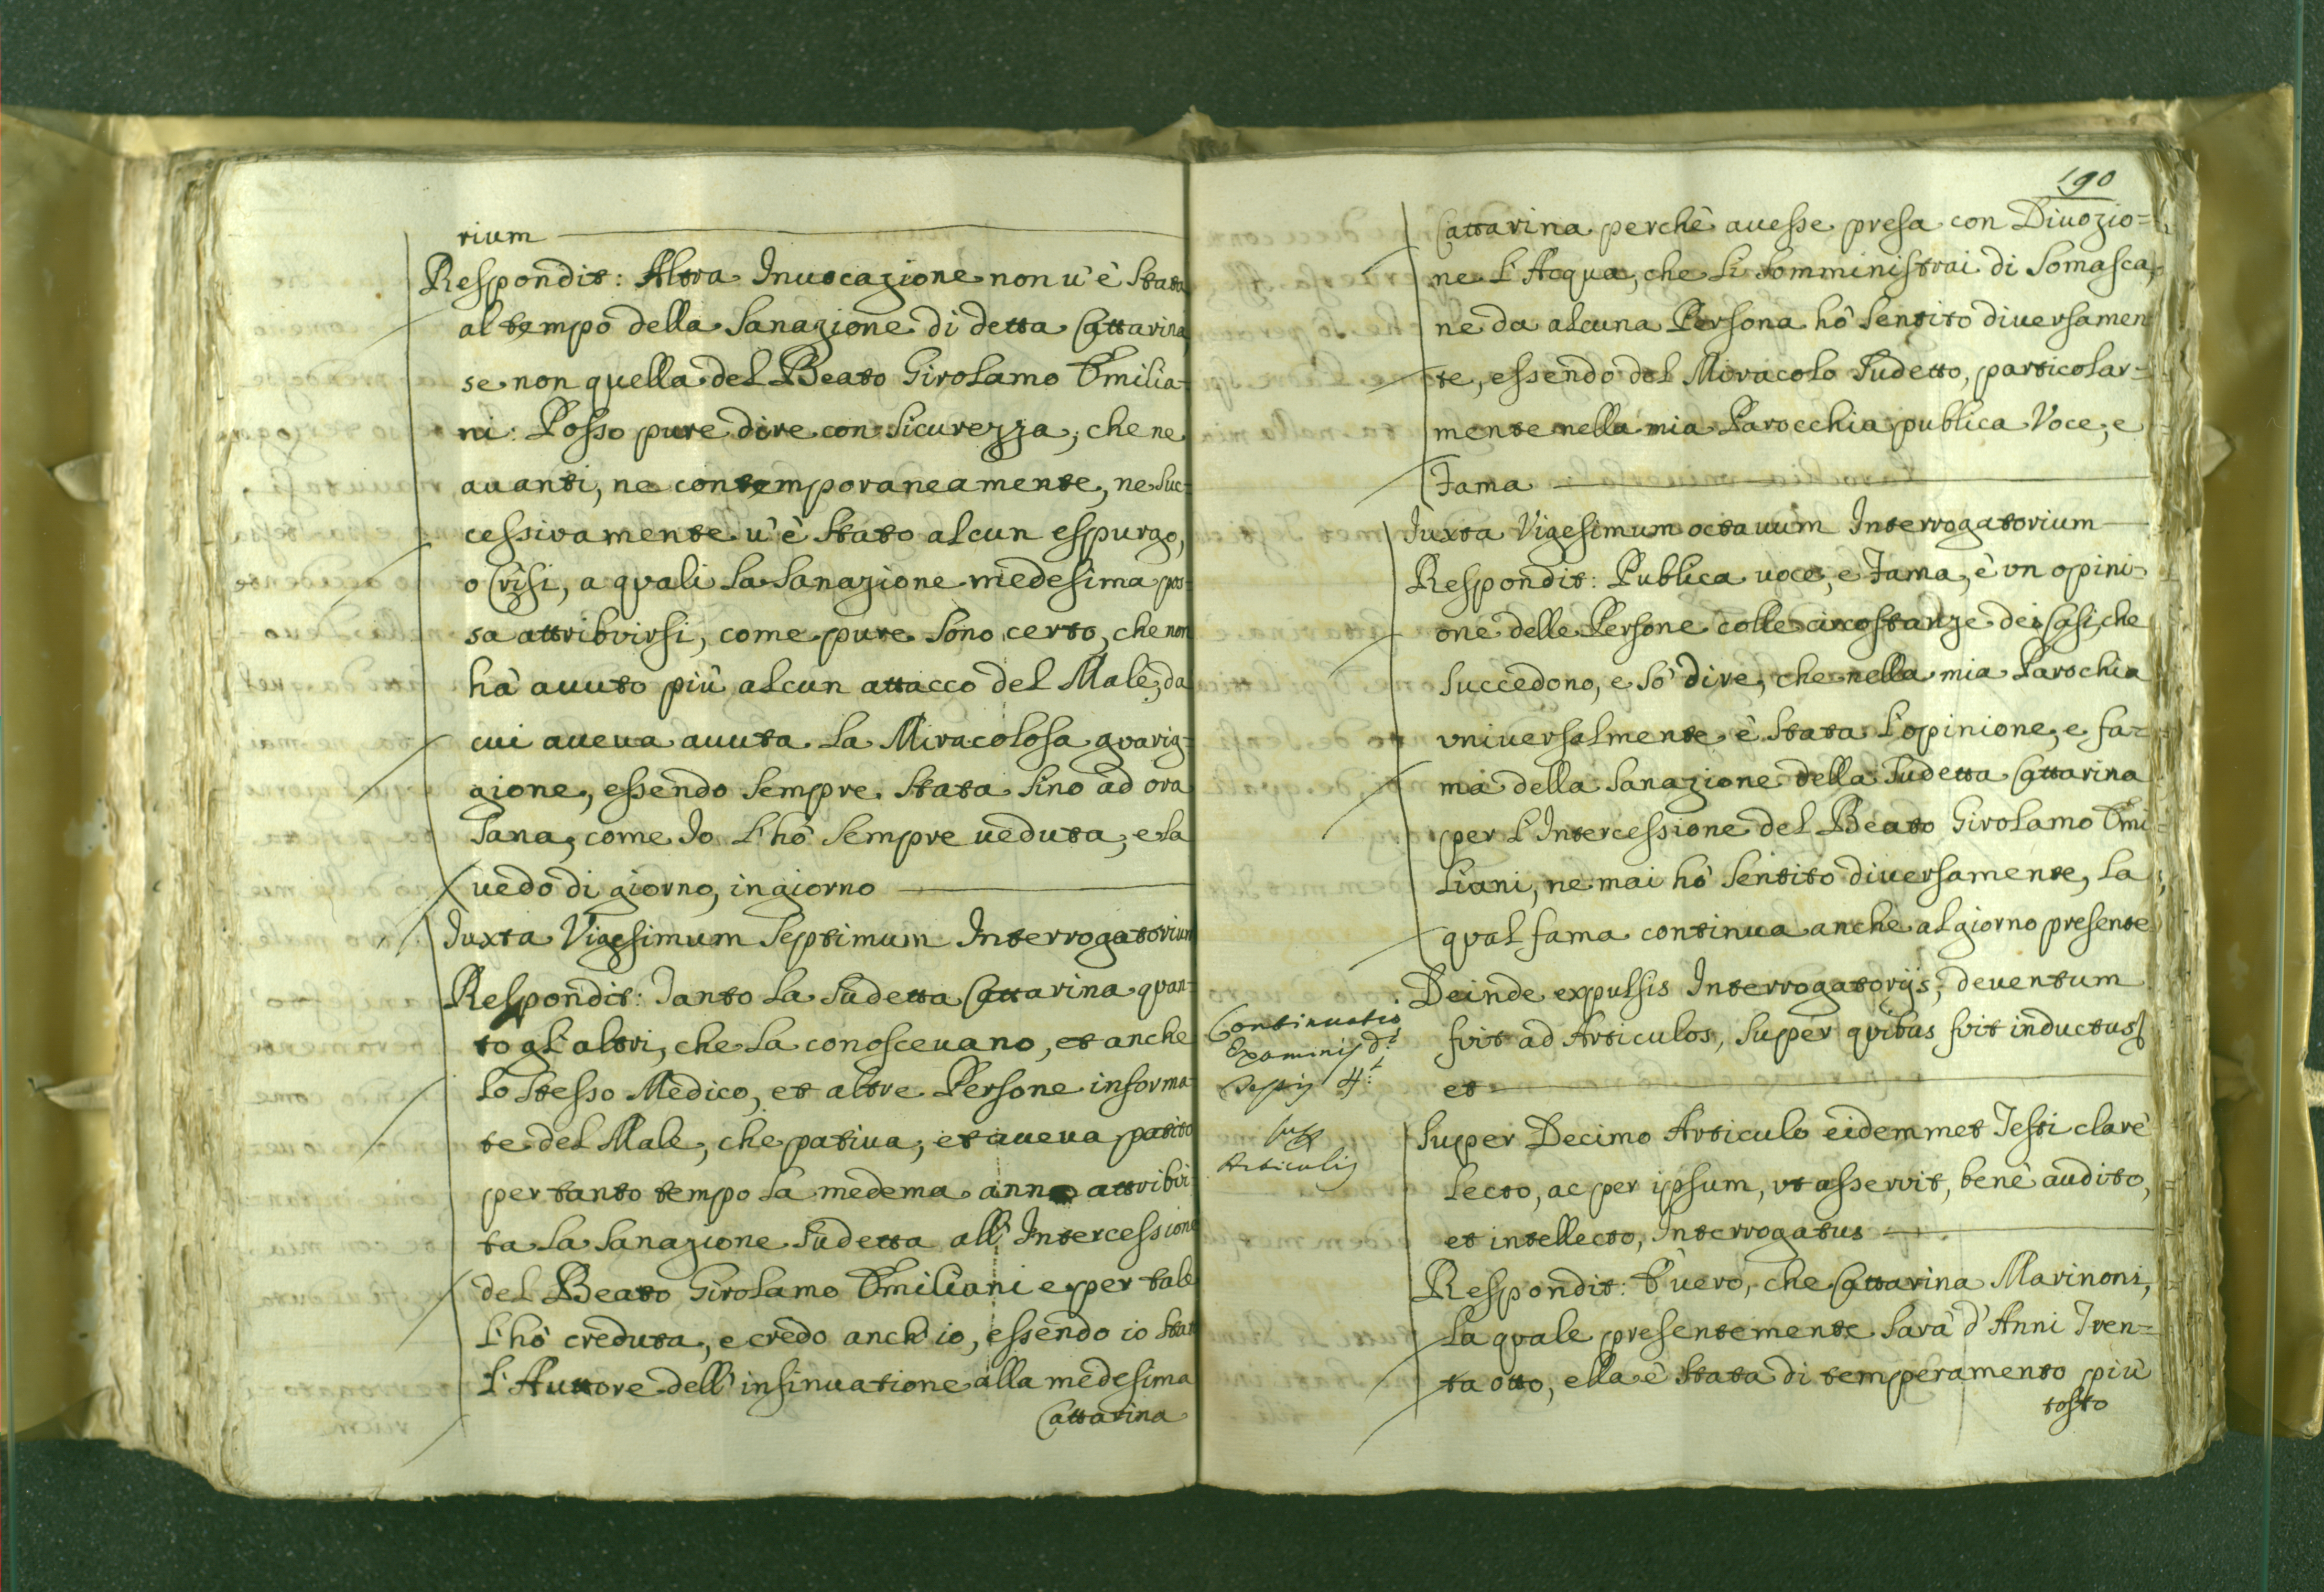 rium
Respondit: Altra Inuocazione non u'è stata
al tempo della Sanazione di detta Cattarina
se non quella del Beato Girolamo Emilia-
ni: Posso pure dire con sicurezza, che ne
auanti, ne contemporaneamente, ne suc-
cessivamente u'è stato alcun espurgo,
o Crisi, a quali la Sanazione medesima pos-
sa attribuirsi, come pure sono certo, che non
hà auuto più alcun attacco del Male, da
cui aueua auuta la Miracolosa guarig-
gione, essendo sempre stata sino ad ora
sana, come Io l'hò sempre ueduta, e la
uedo di giorno, in giorno
Iuxta Vigesimum Septimum Interrogatorium
Respondit: Tanto la sudetta Cattarina quan-
to gl'altri, che la conosceuano, et anche
lo stesso Medico, et altre Persone informa-
te del Male, che patiua, et aueua patito
per tanto tempo la medema anno attribui-
ta la Sanazione sudetta all'Intercessione
del Beato Girolamo Emiliani e per tale
l'hò creduta, e credo anch'io, essendo io stat
l'Auttore dell'insinuatione alla medesima
Cattarina
190
Cattarina perchè auesse presa con Diuozio=
ne l'Acqua, che li somministrai di Somasca,
ne da alcuna Persona hò sentito diuersamen
te, essendo del Miracolo sudetto, particolar=
mente nella mia Parocchia publica Voce, e
Fama
Iuxta Vigesimum octauum Interrogatorium
Respondit: Publica uoce, e Fama, è un opini-
one delle Persone colle circostanze dei Casi, che
succedono, e sò dire, che nella mia Parochia
vniuersalmente è stata l'opinione, e fa-
ma della Sanazione della sudetta Cattarina
per l'Intercessione del Beato Girolamo Emi-
liani, ne mai hò sentito diuersamente, la
qual fama continua anche al giorno presente
Deinde expulsis Interrogatorijs, deuentum
fuit ad Articulos, super quibus fuit inductus
et
Continuatio
Examinis d.i
Testis 4.i
sup.
Articulis
Super Decimo Articulo eidemmet Testi clarè
lecto, ac per ipsum, vt asseruit, benè audito,
et intellecto, Interrogatus
Respondit: È uero, che Cattarina Marinoni,
la quale presentemente sarà d'Anni Tren=
ta otto, ella è stata di temperamento più
tosto